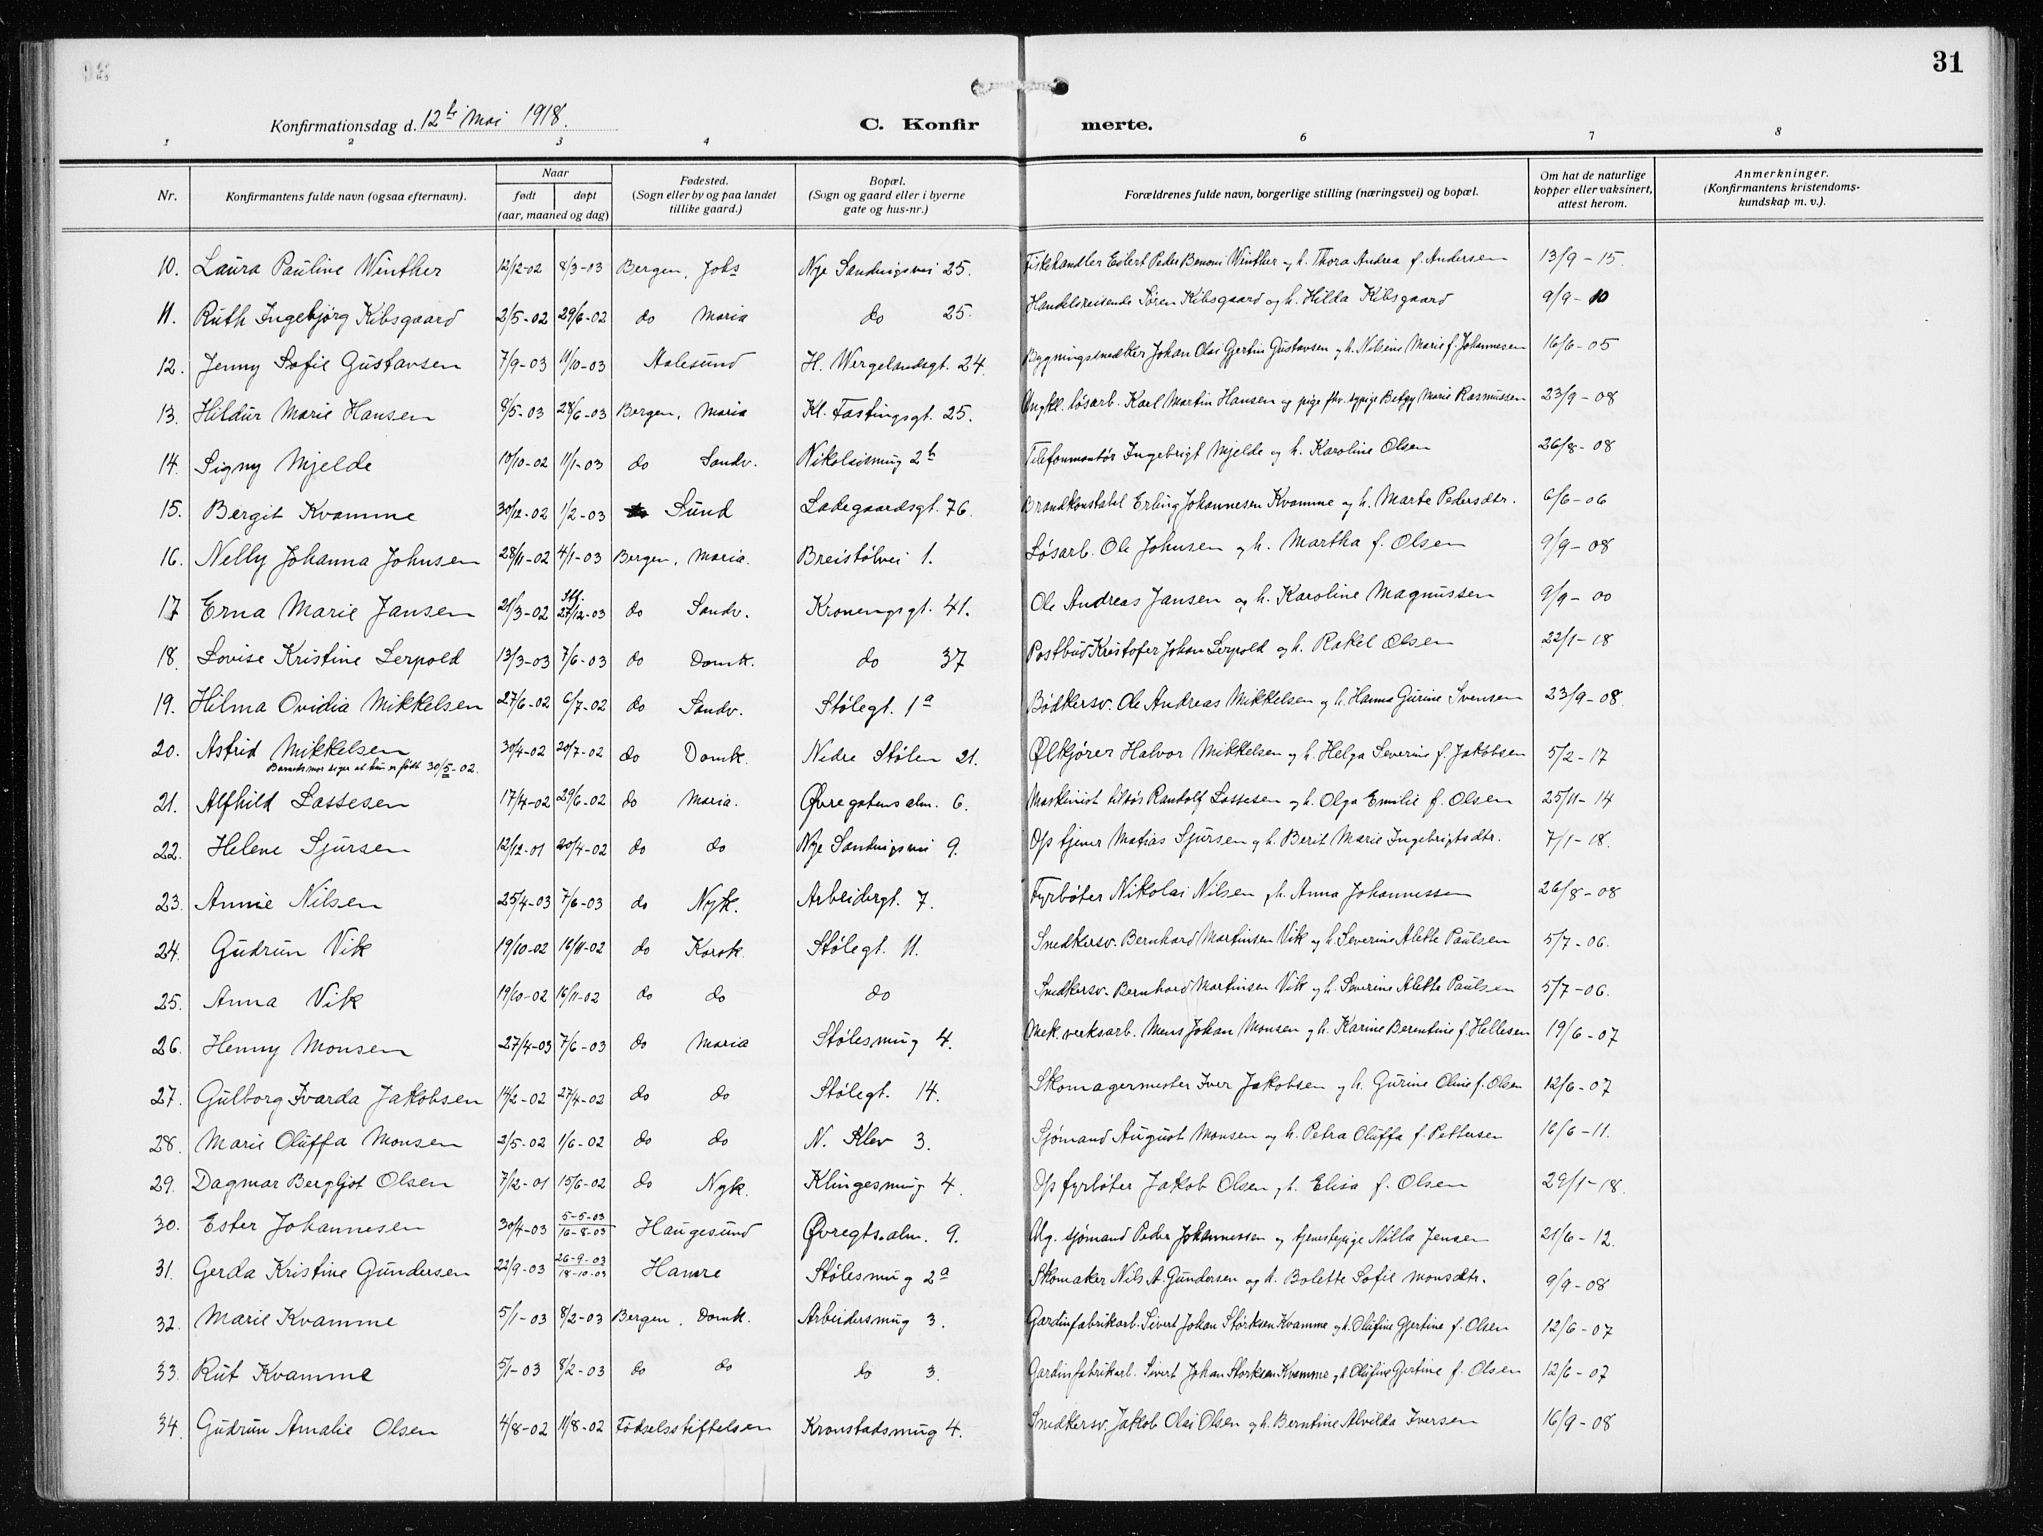 31
Konfirmationsdag d. 12te Mai 1918.
C. Konfirmerte.
1 2 3 4 6 7 8
Nr. Konfirmantens fulde navn (ogsaa efternavn). Naar født døpt (aar, maaned og dag) Fødested. (Sogn eller by og paa landet tillike gaard.) Bopæl. (Sogn og gaard eller i byerne gate og hus-nr.) Forældrenes fulde navn, borgerlige stilling (næringsvei) og bopæl. Om hat de naturlige kopper eller vaksinert, attest herom. Anmerkninger. (Konfirmantens kristendomskundskap m. v.).
10. Laura Pauline Winther 12/12-02 8/3-03 Bergen, Johs Nye Sandvigsvei 25. Fiskehandler Eilert Peder Benoni Winther og h. Thora Andrea f. Andersen 13/9-15.
11. Ruth Ingebjørg Kibsgaard 2/5-02 29/6-02 do Maria do 25. Handelsreisende Søren Kibsgaard og h. Hilda Kibsgaard 9/9-10
12. Jenny Sofie Gustavsen 7/9-03 11/10-03 Aalesund H. Wergelandsgt. 24. Bygningssnedker Johan Olai Gjertin Gustavsen og h. Nilsine Marie f. Johannesen 16/6-05
13. Hildur Marie Hansen 8/5-03 28/6-03 Bergen, Maria Kl. Fastingsgt. 25. Ungkl. løsarb. Karl Martin Hansen og pige fhv. sypige Betzy Marie Rasmussen 23/9-08
14. Signy Mjelde 10/10-02 11/1-03 do Sandv. Nikolaismug 2b Telefonmontør Ingebrigt Mjelde og h. Karoline Olsen 26/8-08
15. Bergit Kvamme 30/12-02 1/2-03 Sund Ladegaardsgt. 76. Brandkonstabel Erling Johannesen Kvamme og h. Marte Pedersdtr. 6/6-06
16. Nelly Johanna Johnsen 28/11-02 4/1-03 Bergen, Maria. Breistølvei 1. Løsarb. Ole Johnsen og h. Martha f. Olsen 9/9-08
17 Erna Marie Jansen 21/3-02 Stf. 27/12-03 do Sandv. Kronengsgt. 41. Ole Andreas Jansen og h. Karoline Magnussen 9/9-00
18. Lovise Kristine Lerpold 13/3-03 7/6-03 do Domk. do 37 Postbud Kristofer Johan Lerpold og h. Rakel Olsen 22/1-18
19. Hilma Ovidia Mikkelsen 27/6-02 6/7-02 do Sandv. Stølegt. 1a Bødkersv. Ole Andreas Mikkelsen og h. Hanna Gurine Svensen 23/9-08.
20. Astrid Mikkelsen 30/4-02 20/7-02 do Domk. Nedre Stølen 21. Ølkjører Halvor Mikkelsen og h. Helga Severine f. Jakobsen 5/2-17
Barnets mor siger at hun er født 30/5-02.
21. Alfhild Lassesen 17/4-02 29/6-02 do Maria. Øvregatens alm. 6. Maskinist tilsjøs Randolf Lassesen og h. Olga Emilie f. Olsen 25/11-14
22. Helene Sjursen 12/12-01 20/4-02 do do Nye Sandvigsvei 9. Opstjener Matias Sjursen og h. Berit Marie Ingebrigtsdtr. 7/1-18.
23. Annie Nilsen 25/4-03 7/6-03 do Nyk. Arbeidergt. 7. Fyrbøter Nikolai Nilsen og h. Anna Johannessen 26/8-08
24. Gudrun Vik 19/10-02 16/11-02 do Korsk. Stølegt. 11. Snedkersv. Bernhard Martinsen Vik og h. Severine Alette Paulsen 5/7-06.
25. Anna Vik 19/10-02 16/11-02 do do do Snedkersv. Bernhard Martinsen Vik og h. Severine Alette Paulsen 5/7-06.
26. Henny Monsen 27/4-03 7/6-03 do Maria Stølesmug 4. Mek. verksarb. Mons Johan Monsen og h. Karine Berentine f. Hellesen 19/6-07
27. Gulborg Ivarda Jakobsen 14/2-02 27/4-02 do do Stølegt. 14. Skomagermester Iver Jakobsen og h. Gurine Oline f. Olsen 12/6-07
28. Marie Oluffa Monsen 2/5-02 1/6-02 do do N. Klev 3. Sjømand August Monsen og h. Petra Oluffa f. Pettersen 16/6-11.
29. Dagmar Bergljot Olsen 7/12-01 15/6-02 do Nyk. Klingesmug 4. Ops fyrbøter Jakob Olsen og h. Elisa f. Olsen 29/1-18.
30. Ester Johannesen 30/4-03 5-5-03 16-8-03 Haugesund Øvregts.alm. 9. Ug. sjømand Peder Johannessen og tjenestepige Milla Jensen 21/6-12.
31. Gerda Kristine Gundersen 22/9-03 26-9-03 18-10-03 Hamre Stølesmug 2a Skomaker Nils A. Gundersen og h. Bolette Sofie Monsdtr. 9/9-08
32. Marie Kvamme 5/1-03 8/2-03 Bergen, Domk. Arbeidersmug 3. Gardinfabrikarb. Sivert Johan Størksen Kvamme og h. Olufine Gjertine f. Olsen 12/6-07
33. Rut Kvamme 5/1-03 8/2-03 do do do 3. Gardinfabrikarb. Sivert Johan Størksen Kvamme og h. Olufine Gjertine f. Olsen 12/6-07
34. Gudrun Amalie Olsen 4/8-02 11/8-02 Fødselsstiftelsen Kronstadsmug 4. Snedkersv. Jakob Olai Olsen og h. Berntine Alvilda Iversen 16/9-08